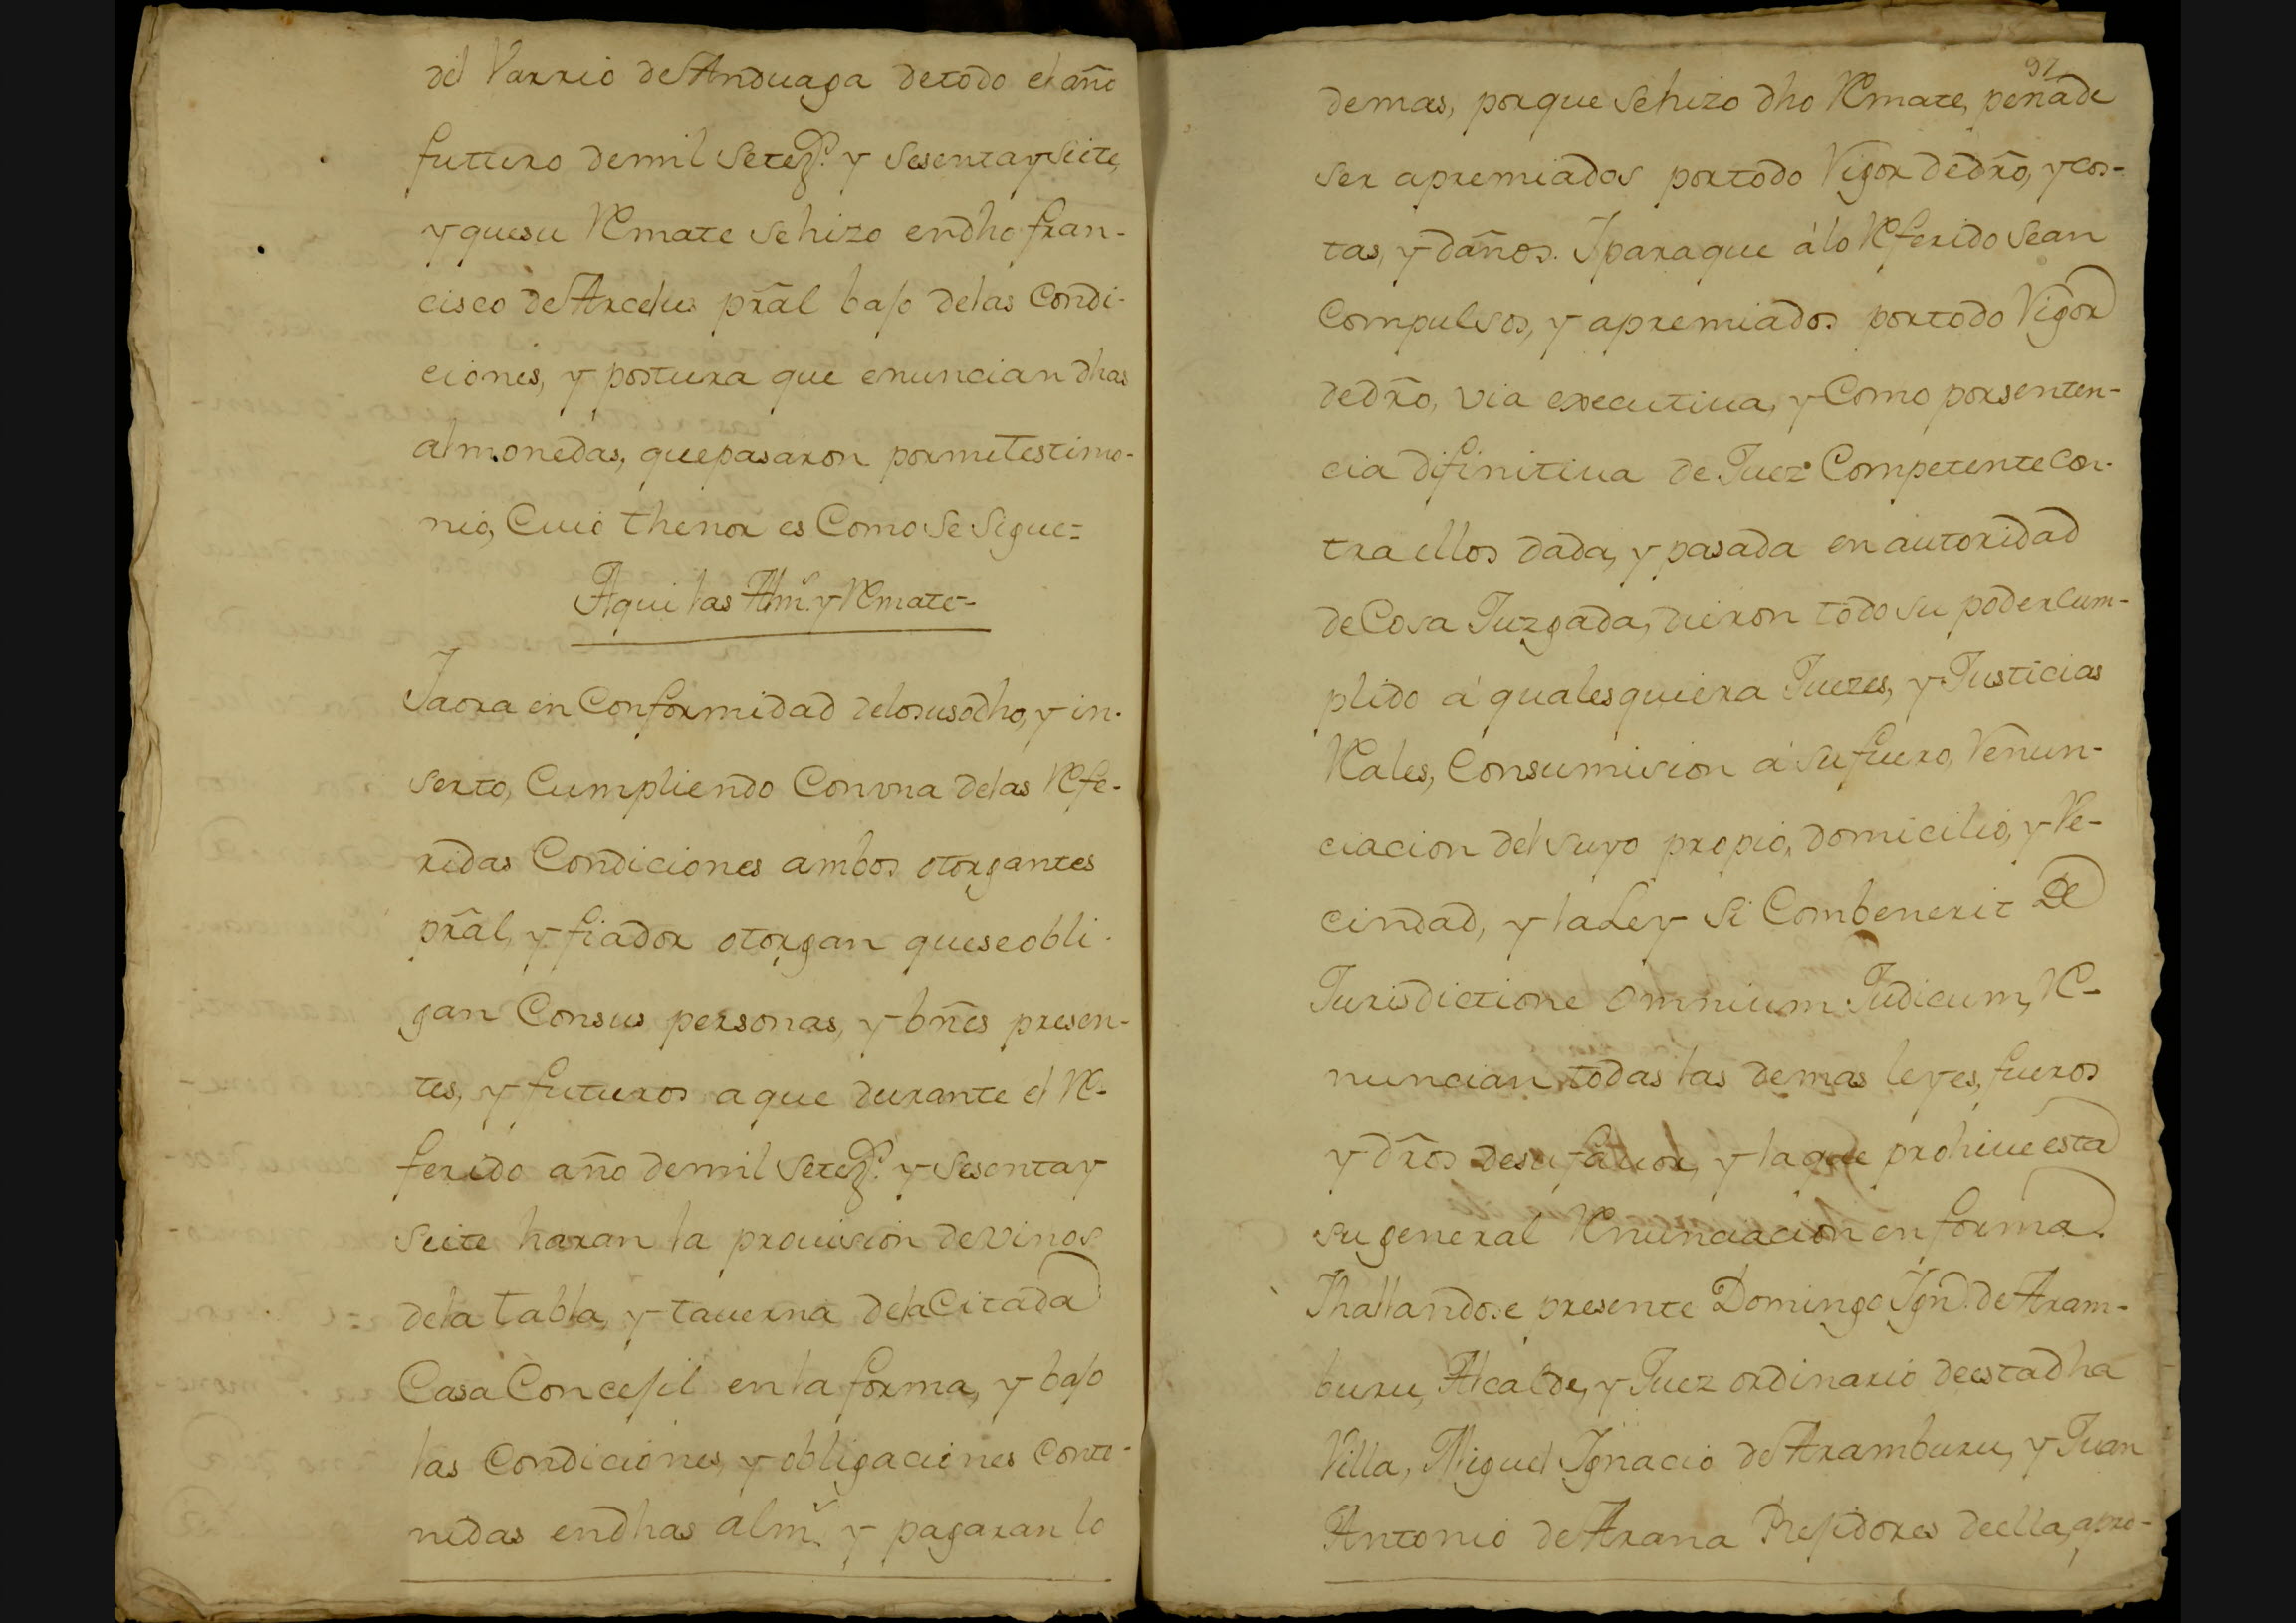 del Varrio de Anduaga de todo el año
futturo de mil setez.s y sesenta y siete,
y que su Remate se hizo en dho fran-
cisco de Arcelus prãl bajo de las Condi-
ciones, y postura que enuncian dhas
almonedas, que pasaron por mi testimo-
nio, Cuio thenor es Como se sigue=
Aqui las Alm.s y Remate-
Jaora en Conformidad delo susodho, y in-
serto, Cumpliendo Con vna de las Refe-
ridas Condiciones ambos otorgantes
prãl, y fiador otorgan que se obli-
gan Con sus personas, y bñes presen-
tes, y futuros a que durante el Re-
ferido año de mil setez.s y sesenta y
siete haran la prouision de vinos
de la tabla, y tauerna de la Citada
Casa Concejil en la forma, y bajo
las Condiciones, y obligaciones Conte-
nidas en dhas alm.s y pagaran lo
92
demas, porque se hizo dho Remate, pena de
ser apremiados por todo Vigor de dr̃o, y cos-
tas, y daños. I para que á lo Referido sean
Compulsos, y apremiados por todo Vigor
de dr̃o, via executiua, y Como por senten-
cia difinitiua de Juez Competente con-
tra ellos dada, y pasada en autoridad
de Cosa Juzgada, dieron todo su poder Cum-
plido a qualesquiera Juezes, y Justicias
Reales, Con sumision a su fuero, Renun-
ciacion del suyo propio, domicilio, y Ve-
cindad, y la Ley Si Combenerit De
Jurisdictione omnium Judicum, Re-
nuncian todas las demas leyes, fueros
y dr̃os de su fauor, y la que prohiue esta
su general Renunciacion en forma.
I hallandose presente Domingo Ign.o de Aram-
buru, Alcalde, y Juez ordinario de esta dha
Villa, Miguel Ignacio de Aramburu, y Juan
Antonio de Arana Rejidores de ella, apro-